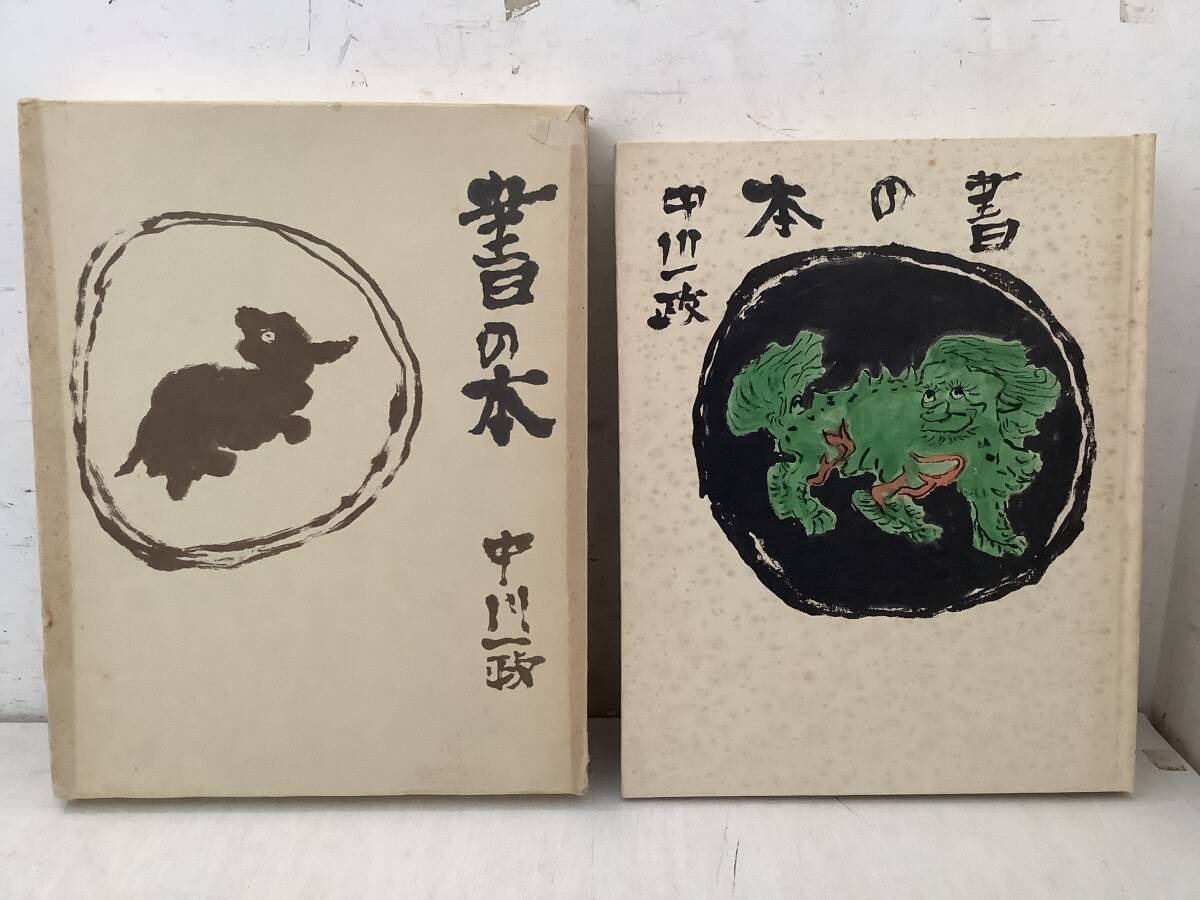 書の本
中川一政
書の本
中川一政